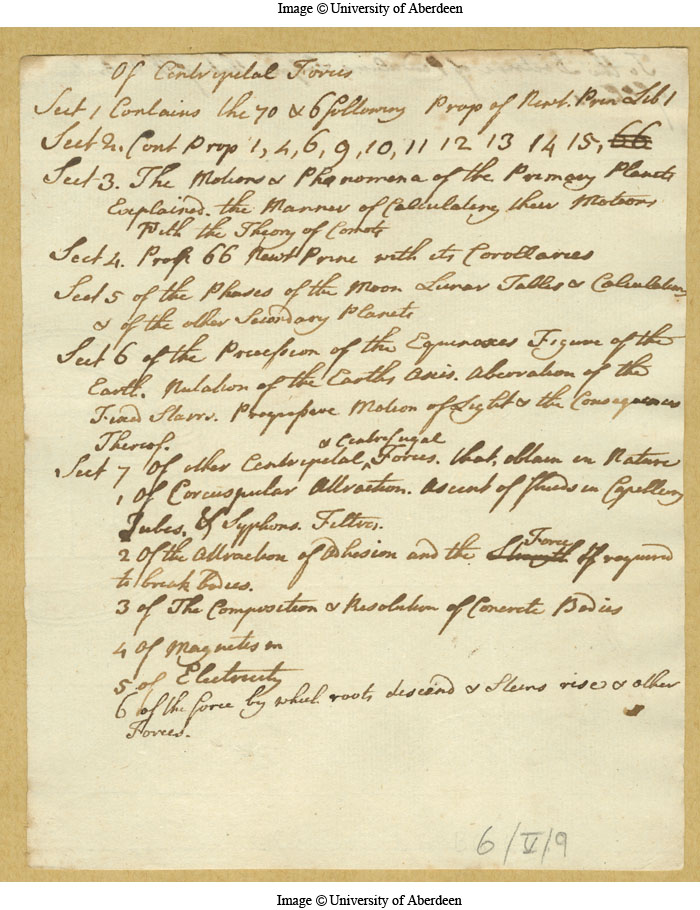 Image © University of Aberdeen
Of Centripetal Forces
Sect 1 Contains the 70 & 6 following Prop of Newt. Prin Lib 1
Sect 2. Cont Prop 1, 4, 6, 9, 10, 11 12 13 14 15, 66
Sect 3. The Motions & Phænomena of the Primary Planets
Explained. the Manner of Calculating their Motions
With the Theory of Comets
Sect 4. Prop. 66 Newt Prine with its Corollaries
Sect 5 of the Phases of the Moon Lunar Tables & Calculation
& of the other Secondary Planets
Sect 6 of the Precession of the Equinoxes Figure of the
Earth. Nutation of the Earths Axis. Aberration of the
Fixed Starrs. Progressive Motion of Light & the Consequences
Thereof.
& Centrifugal
Sect 7 Of other Centripetal ‸ Forces. that, obtain in Nature
1 Of Corcuspular Attraction. Ascent of fluids in Capellery
Tubes, & Syphons. Filtres.
Force
2 Of the Attraction of Adhesion and the Strength If required
to break bodies.
3 of The Composition & Resolution of Concrete Bodies
4 Of Magnetism
5 of Electricity
6 of the force by which roots descend & Stems rise & other
Forces.
6/V/9
Image © University of Aberdeen